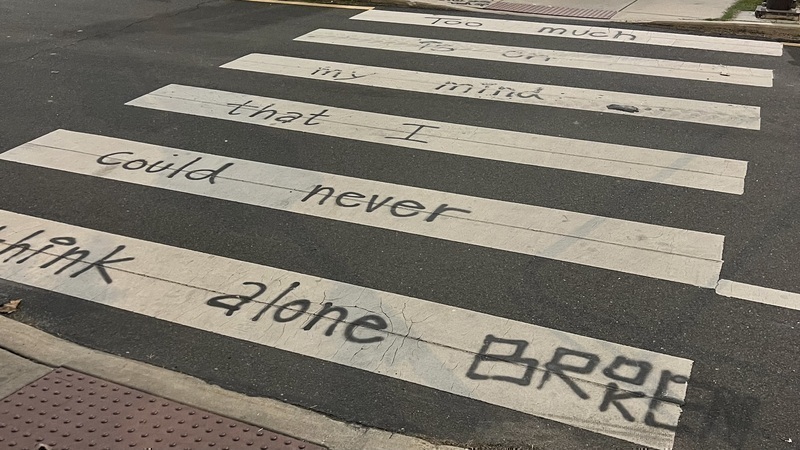 Too much
is on
my mind
that I
could never
think alone BROKEN